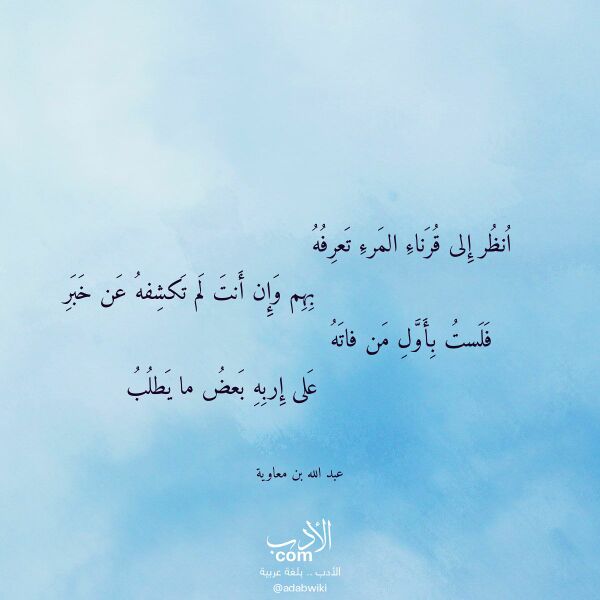 اُنظُر إِلى قُرَناءِ المَرءِ تَعرِفُهُ
بِهِم وَإِن أَنتَ لَم تَكشِفهُ عَن خَبَرِ
فَلَستُ بِأَوَّلِ مَن فاتَهُ
عَلى إِربِهِ بَعضُ ما يَطلُبُ
عبد الله بن معاوية
الأدب
com
الأدب .. بلغة عربية
@adabwiki